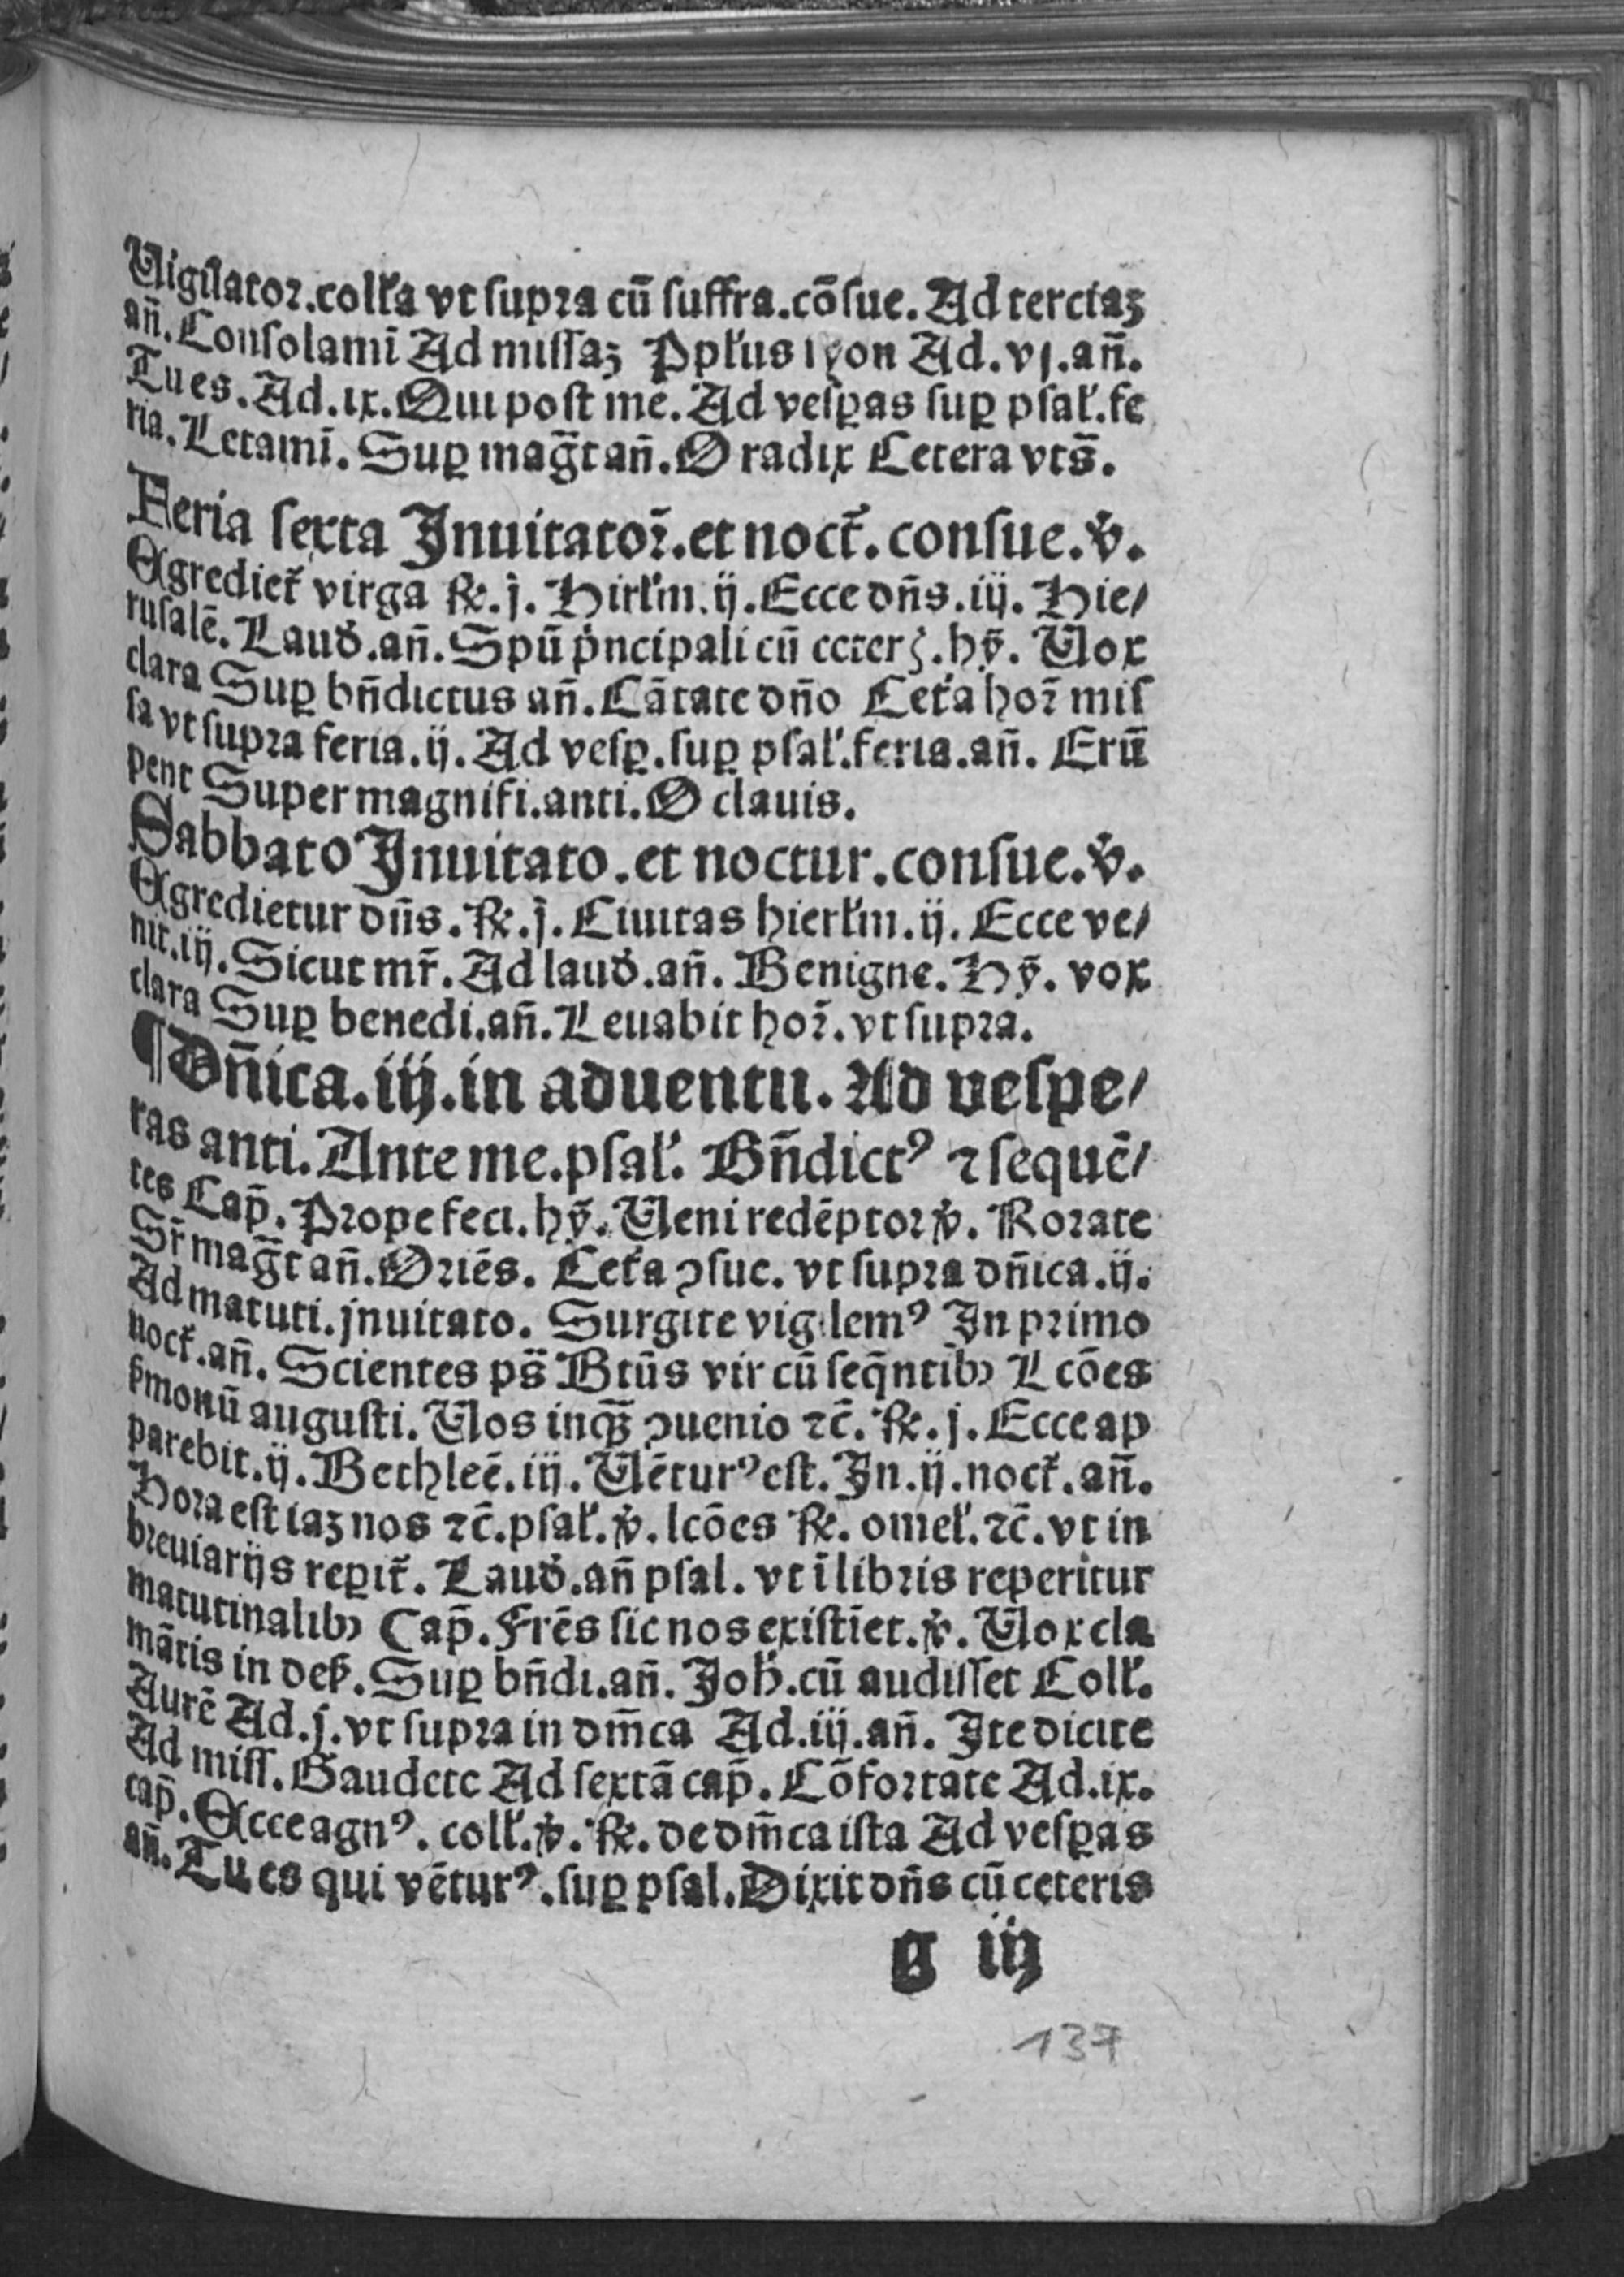 Uigilator.coll'a vt supra cū suffra.cōsue. Ad terciaꝫ
an̄. Consolamī Ad missaꝫ Ppl'us syon Ad.vj.an̄.
Tu es. Ad.ix. Qui post me. Ad vesꝑas suꝑ psal'.fe
ria. Letamī. Suꝑ mag̃t an̄. O radix Cetera vts̄.
Feria sexta Inuitator̄.et noct'.consue.℣.
Egrediet' virga ℟.j. Hirl'm.ij. Ecce dn̄s.iij. Hie/
rusalē. Laud'.an̄. Spū pͥncipali cū ceterꝭ.hỹ. Uox
clara Suꝑ bn̄dictus an̄. Cātate dn̄o Cet'a hor̄ mis
sa vt supra feria.ij. Ad vesꝑ.suꝑ psal'.feria.an̄. Erū
pent Super magnifi.anti. O clauis.
Sabbato Inuitato.et noctur.consue.℣.
Egredietur dn̄s. ℟.j. Ciuitas hierl'm.ij. Ecce ve/
nit.iij. Sicut mr̄. Ad laud'.an̄. Benigne. Hỹ. vox
clara Suꝑ benedi.an̄. Leuabit hor̄.vt supra.
¶Dn̄ica.iij.in aduentu. Ad vespe/
ras anti. Ante me.psal'. Bn̄dictꝰ ⁊ sequē/
tes Cap̄. Prope feci.hỹ. Ueni redēptor ℣. Rorate
Sr̄ mag̃t an̄. Oriēs. Cet'a ꝯsue. vt supra dn̄ica.ij.
Ad matuti.jnuitato. Surgite vigilemꝰ In primo
noct'.an̄. Scientes ps̄ Btūs vir cū seq̄ntibꝫ Lcōes
ẜmonū augusti. Uos inqꝫ ꝯuenio ⁊c̄. ℟.j. Ecce ap
parebit.ij. Bethleē.iij. Uēturꝰ est. In.ij.noct'.an̄.
Hora est iaꝫ nos ⁊c̄.psal'.℣.lcōes ℟. omel'.⁊c̄.vt in
breuiarijs reꝑit'. Laud'.an̄ psal. vt ī libris reperitur
matutinalibꝫ Cap̄. Frēs sic nos existīet.℣. Uox cla
mātis in deẜ. Suꝑ bn̄di.an̄. Joh'.cū audisset Coll'.
Aurē Ad.j.vt supra in dm̄ca Ad.iij.an̄. Ite dicite
Ad miss. Gaudete Ad sextā cap̄. Cōfortate Ad.ix.
cap̄. Ecce agnꝰ. coll'.℣.℟. de dm̄ca ista Ad vesꝑas
an̄. Tu es qui vēturꝰ.suꝑ psal. Dixit dn̄s cū ceteris
g iij
137